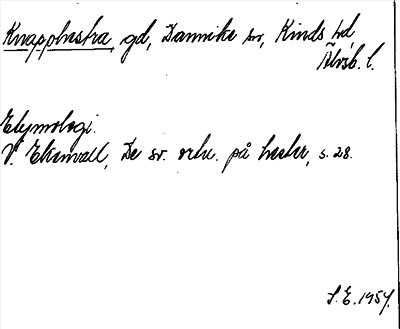 Knapphestra, gd, Dannike sn, Kinds hd
Älvsb. l.
Etymologi.
V. Ekenvall, De sv. ortn. på hester, s. 28.
S. E. 1957.